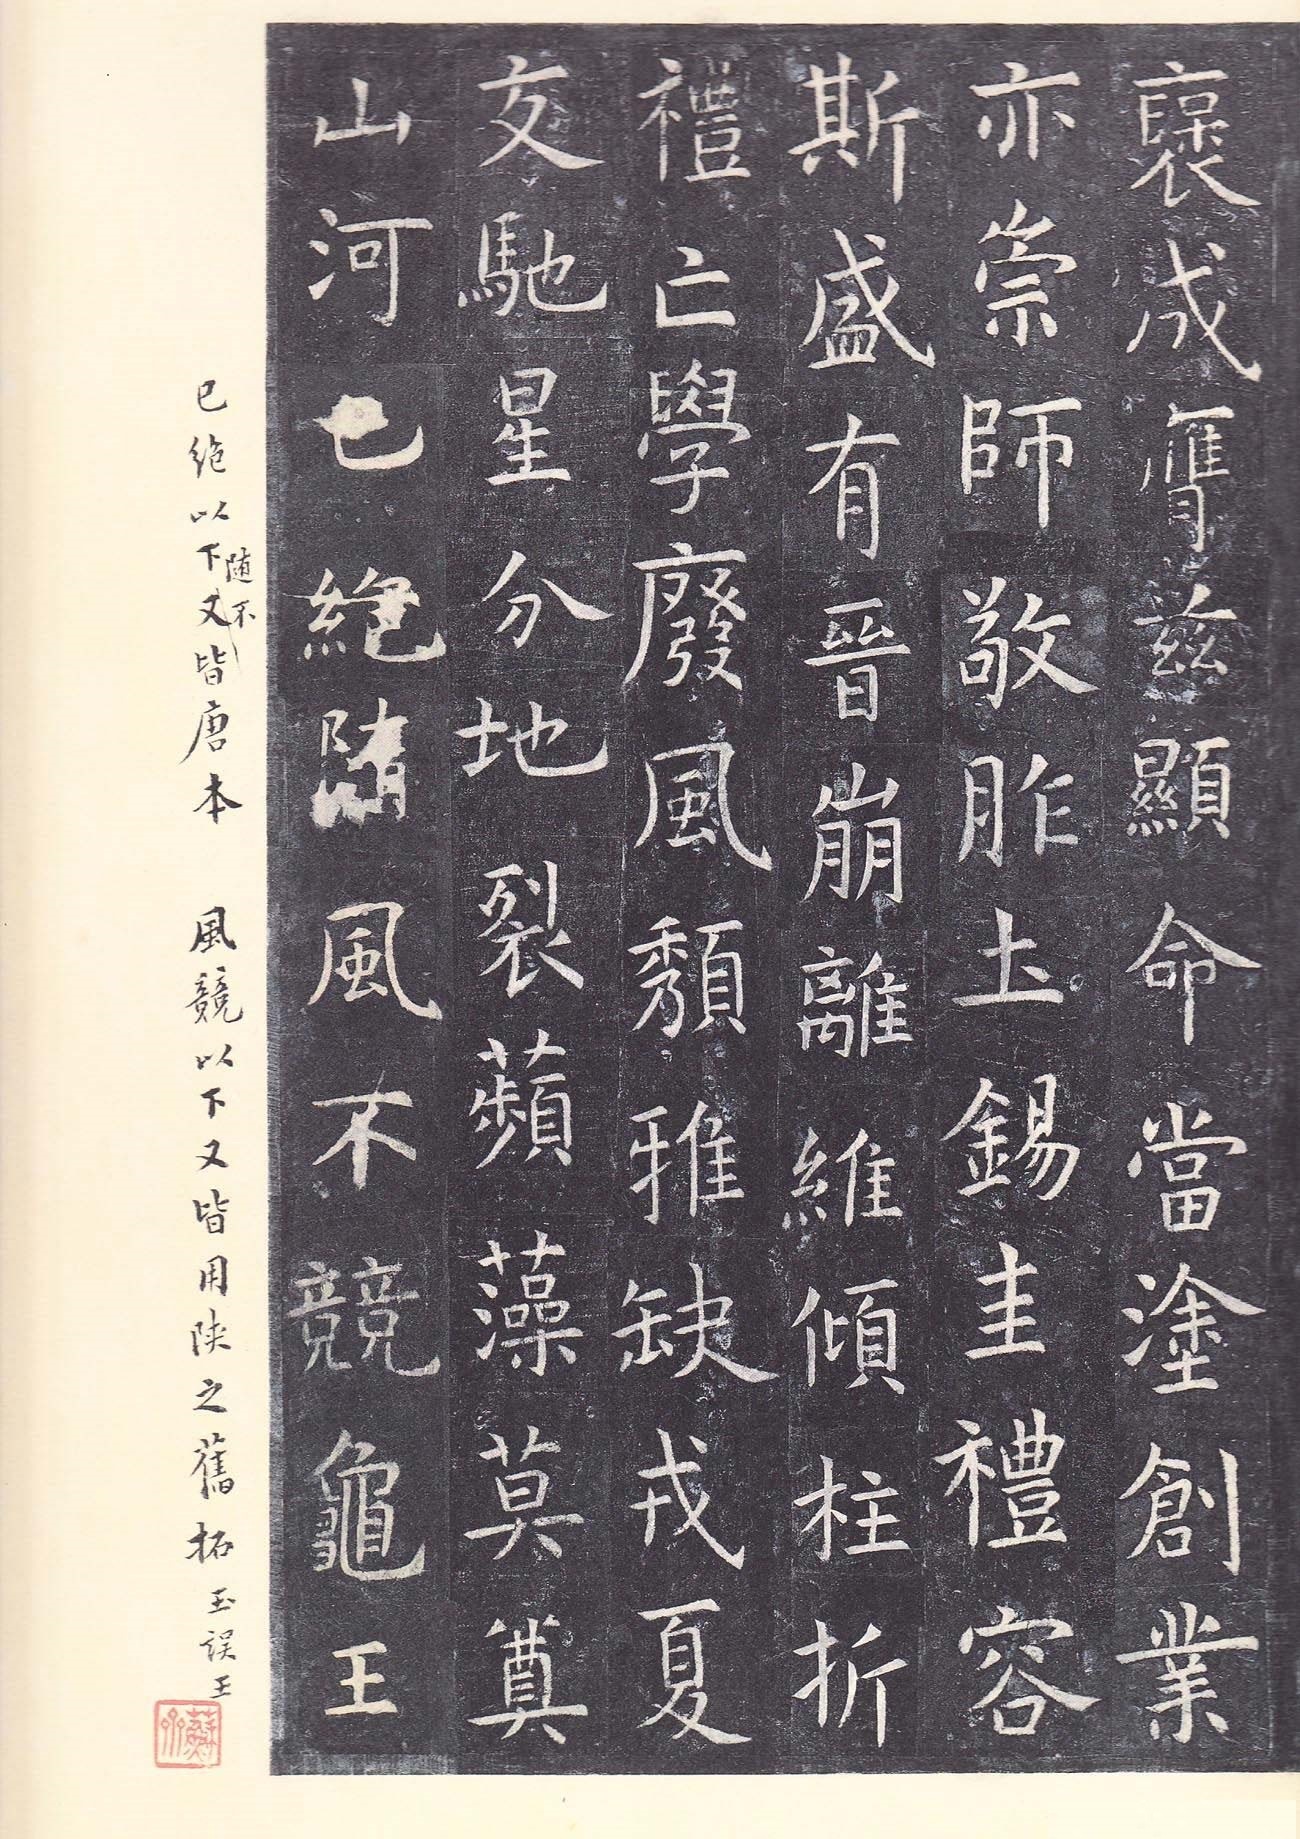 襃成膺兹顯命當塗創業
亦崇師敬胙土錫圭禮容
斯盛有晉崩離維傾柱折
禮亡學廢風頹雅缺戎夏
交馳星分地裂蘋藻莫奠
山河已絕隨風不競龜王
已絶以下又皆唐本　風競以下又皆用陕之舊拓 玉誤王
随不